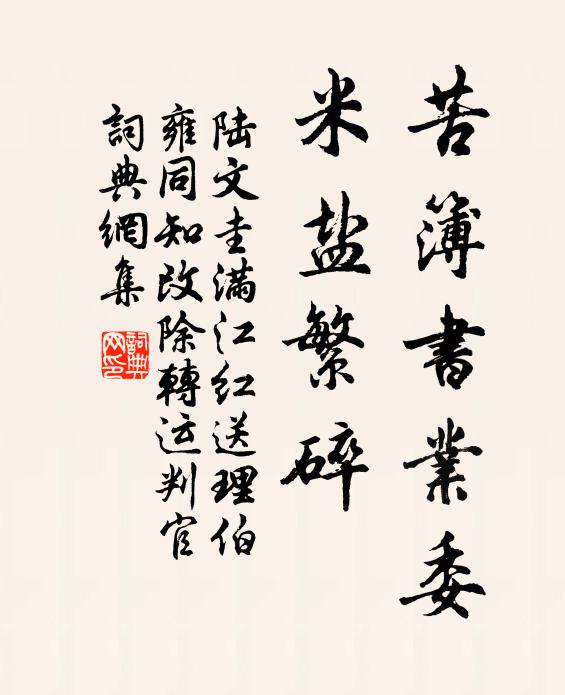 苦簿書業委
米盐繁碎
陆文圭满江红送理伯
雍同知改除轉运判官
詞典網集
詞典網印